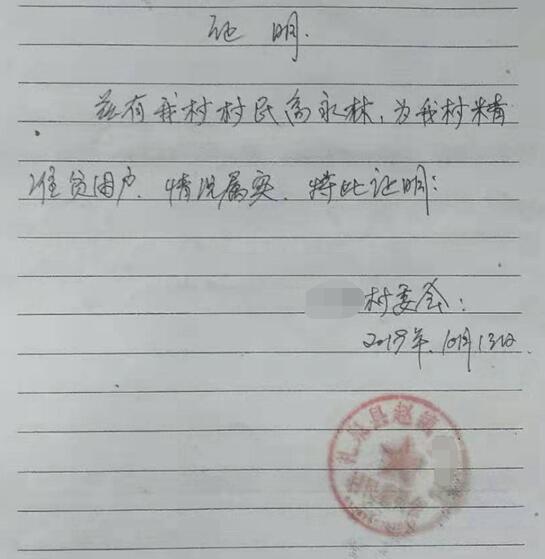 证明.
兹有我村村民高永林,为我村精
准贫困户.情况属实.特此证明:
村委会:
2019年.10月13日
礼泉县赵镇